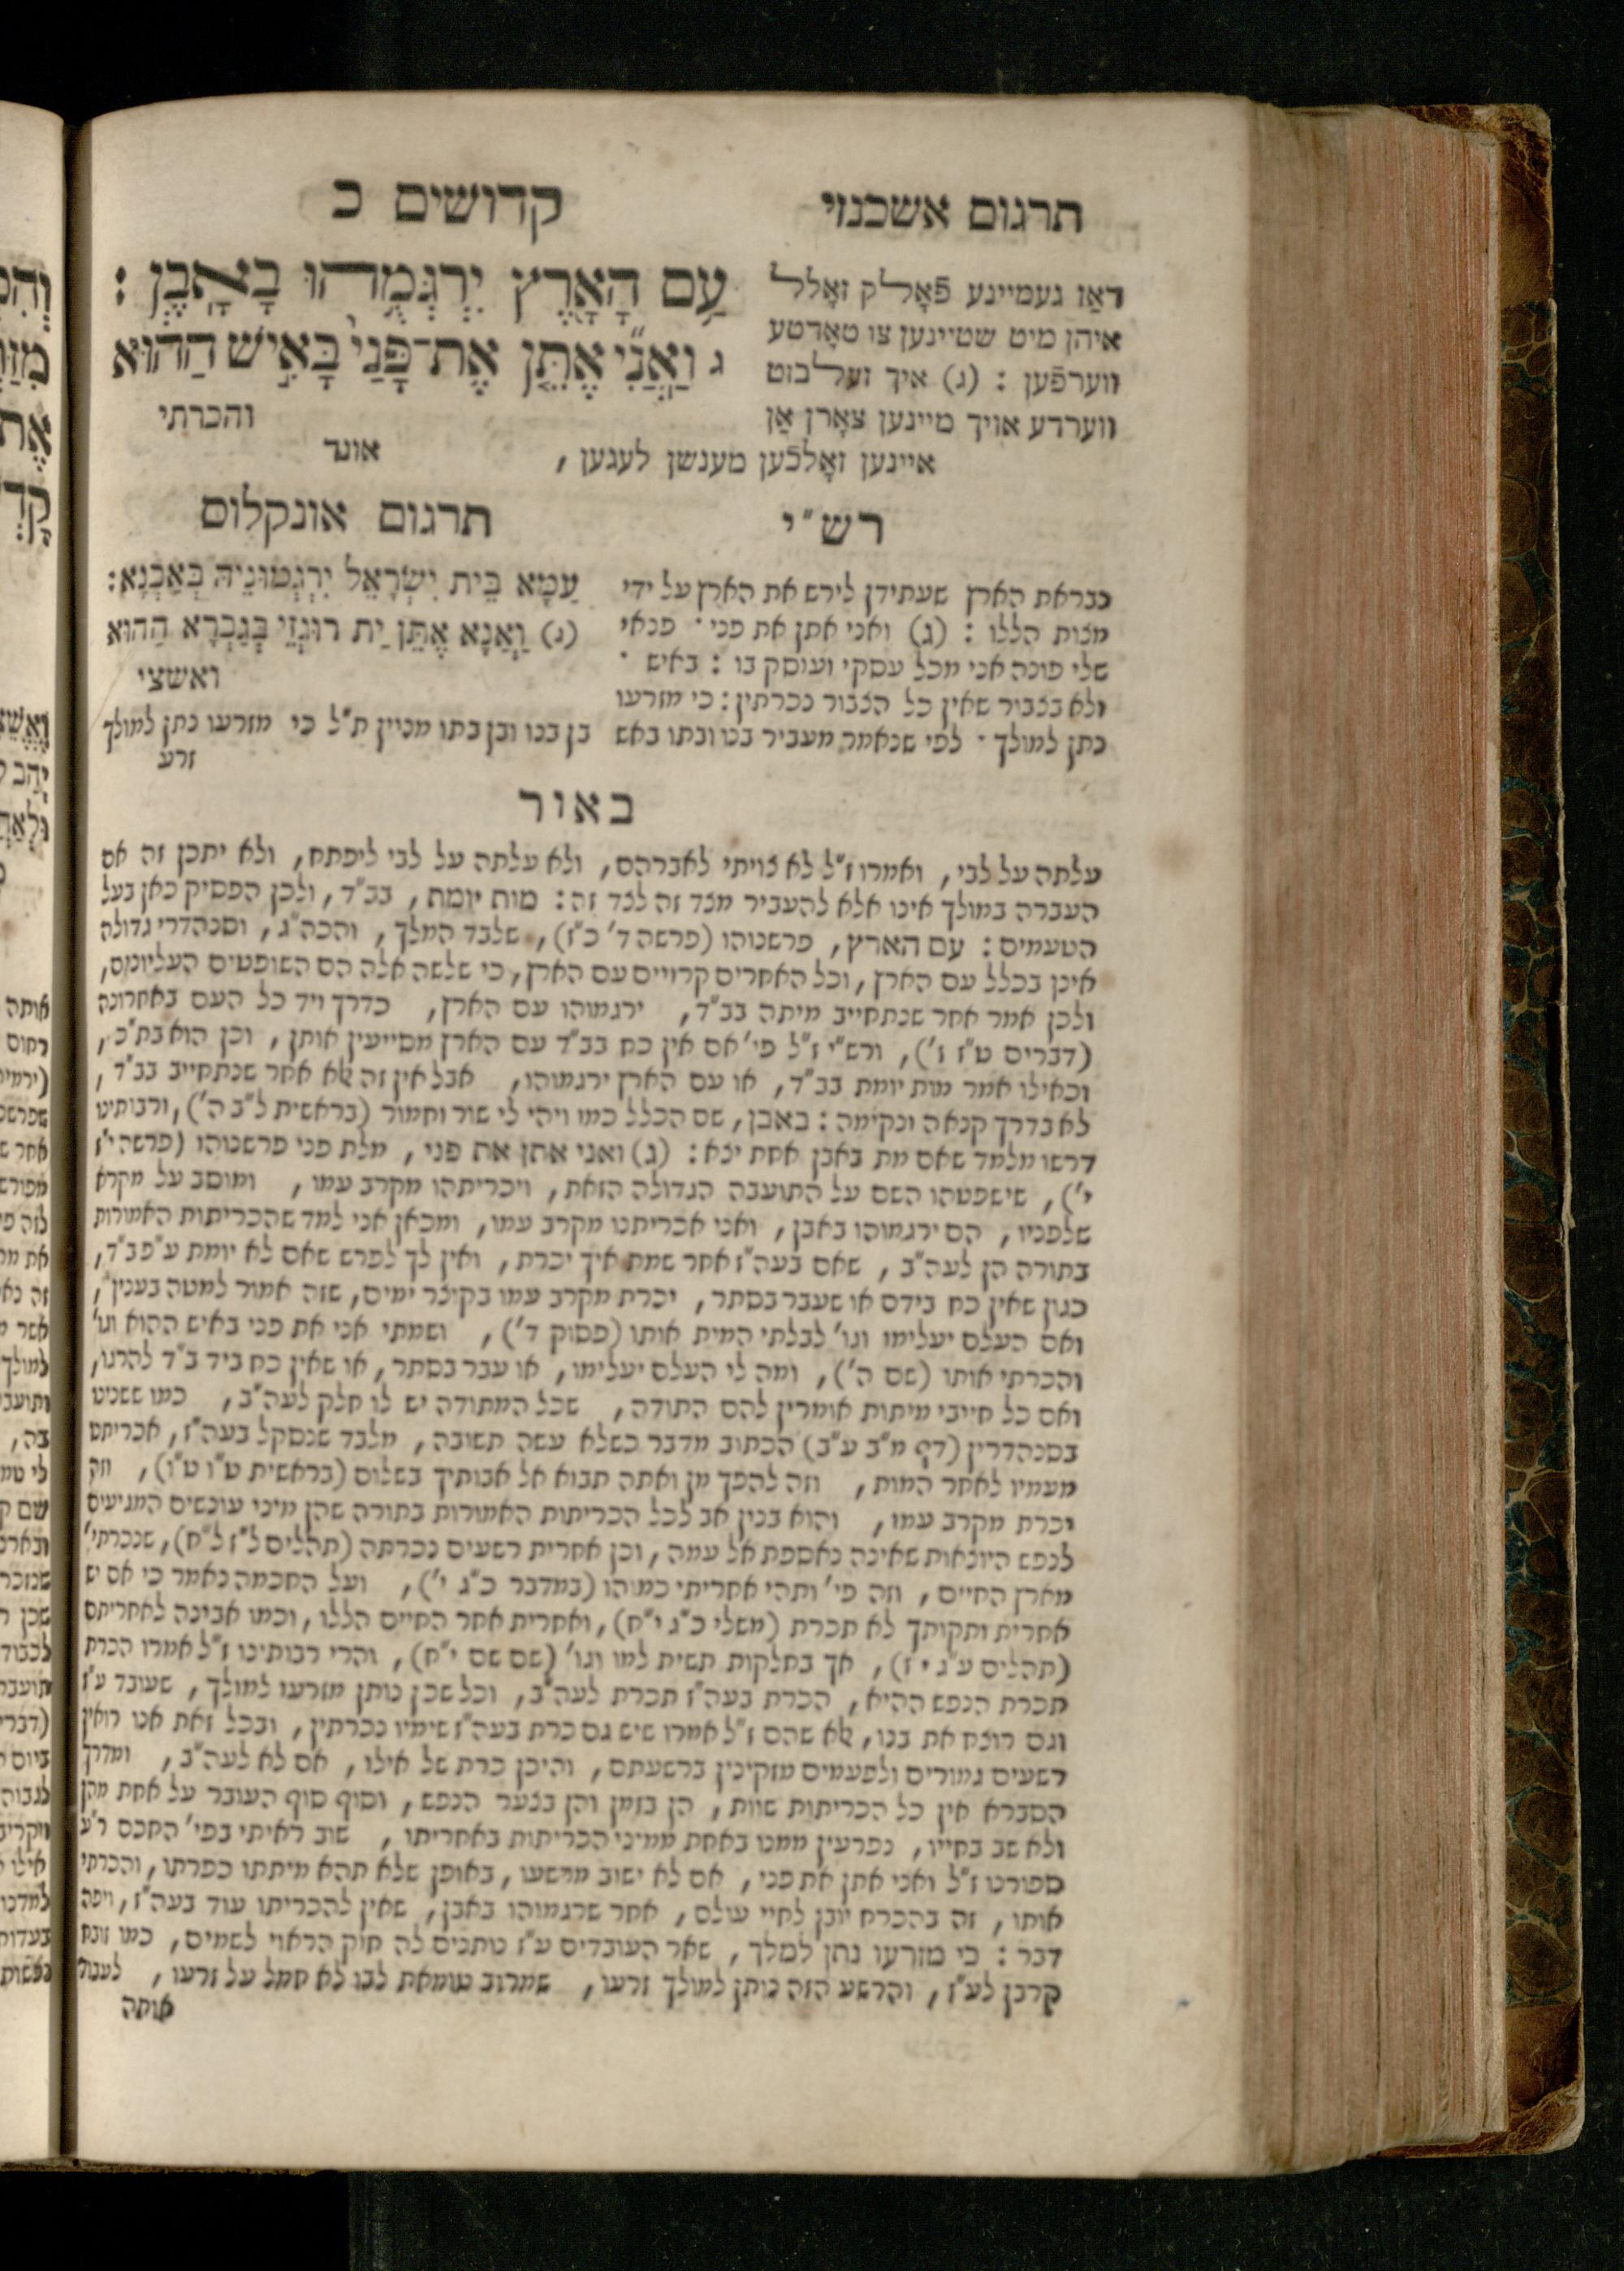 תרגום אשכנזי
קדושים כ
דאַז געמיינע פֿאָלק זאָלל
איהן מיט שטיינען צו טאָדטע
ווערפֿען : (ג) איך זעלבזט
ווערדע אויך מיינען צאָרן אַן
איינען זאָלכֿען מענשן לעגען ,
אונד
עַם הָאָרֶץ יִרְגְּמֻהוּ בָאָבֶן :
ג וַאֲנִי אֶתֵּן אֶת־פָּנַי בָּאִישׁ הַהוּא
והכרתי
רש״י
כבראת הארץ שעתידן לירש את הארץ על ידי
מצות הללו : (ג) ואני אתן את פני · פנאי
שלי פונה אני מכל עסקי ועוסק בו : באיש ·
ולא בצבור שאין כל הצבור נכרתין : כי מזרעו
נתן למולך · לפי שנאמר מעביר בנו ובתו באש בן בנו ובן בתו מניין ת״ל כי מזרעו נתן למולך
זרע
תרגום אונקלוס
עַמָּא בֵּית יִשְׂרָאֵל יִרְגְּמוּנֵיהּ בְּאַבְנָא :
(ג) וַאֲנָא אֶתֵּן יַת רוּגְזֵי בְּגַבְרָא הַהוּא
ואשצי
באור
עלתה על לבי , ואמרו ז״ל לא צויתי לאברהם , ולא עלתה על לבי ליפתח , ולא יתכן זה אם
העברה במולך אינו אלא להעביר מצד זה לצד זה : מות יומת , בב״ד , ולכן הפסיק כאן בעל
הטעמים : עם הארץ , פרשנוהו (פרשה ד׳ כ״ז) , שלבד המלך , והכה״ג , וסנהדרי גדולה
אינן בכלל עם הארץ , וכל האחרים קרויים עם הארץ , כי שלשה אלה הם השופטים העליונים ,
ולכן אמר אחר שנתחייב מיתה בב״ד , ירגמוהו עם הארץ , כדרך ויד כל העם באחרונה
(דברים ט״ז ז׳) , ורש״י ז״ל פי׳ אם אין כח בב״ד עם הארץ מסייעין אותן , וכן הוא בת״כ ,
וכאילו אמר מות יומת בב״ד , או עם הארץ ירגמוהו , אבל אין זה אלא אחר שנתחייב בב״ד ,
לא בדרך קנאה ונקימה : באבן , שם הכלל כמו ויהי לי שור וחמור (בראשית ל״ב ה׳) , ורבותינו
דרשו מלמד שאם מת באבן אחת יצא : (ג) ואני אתן את פני , מלת פני פרשנוהו (פרשה י״ז
י׳) , שישפטהו השם על התועבה הגדולה הזאת , ויכריתהו מקרב עמו , ומוסב על מקרא
שלפניו , הם ירגמוהו באבן , ואני אכריתנו מקרב עמו , ומכאן אני למד שהכריתות האמורות
בתורה הן לעה״ב , שאם בעה״ז אחר שמת איך יכרת , ואין לך לפרש שאם לא יומת ע״פ ב״ד ,
כגון שאין כח בידם או שעבר בסתר , יכרת מקרב עמו בקוצר ימים , שזה אמור למטה בענין ,
ואם העלם יעלימו וגו׳ לבלתי המית אותו (פסוק ד׳) , ושמתי אני את פני באיש ההוא וגו׳
והכרתי אותו (שם ה׳) , ומה לי העלם יעלימו , או עבר בסתר , או שאין כח ביד ב״ד להרגו ,
ואם כל חייבי מיתות אומרין להם התודה , שכל המתודה יש לו חלק לעה״ב , כמו ששנינו
בסנהדרין (דף מ״ב ע״ב) הכתוב מדבר כשלא עשה תשובה , מלבד שנסקל בעה״ז , אכריתו
מעמיו לאחר המות , וזה להפך מן ואתה תבוא אל אבותיך בשלום (בראשית ט״ו ט״ו) , וזה
יכרת מקרב עמו , והוא בנין אב לכל הכריתות האמורות בתורה שהן מיני עונשים המגיעים
לנפש היוצאות שאינה נאספת אל עמה , וכן אחרית רשעים נכרתה (תהלים ל״ז ל״ח) , שנכרתי׳
מארץ החיים , וזה פי׳ ותהי אחריתי כמוהו (במדבר כ״ג י׳) , ועל החכמה נאמר כי אם יש
אחרית ותקותך לא תכרת (משלי כ״ג י״ח) , ואחרית אחר החיים הללו , וכמו אבינה לאחריתם
(תהלים ע״ג י״ז) , אך בחלקות תשית למו וגו׳ (שם שם י״ח) , והרי רבותינו ז״ל אמרו הכרת
תכרת הנפש ההיא , הכרת בעה״ז תכרת לעה״ב , וכל שכן נותן מזרעו למולך , שעובד ע״ז
וגם רוצח את בנו , אלא שהם ז״ל אמרו שיש גם כרת בעה״ז שימיו נכרתין , ובכל זאת אנו רואין
רשעים גמורים ולפעמים מזקינין ברשעתם , והיכן כרת של אילו , אם לא לעה״ב , ומדרך
הסברא אין כל הכריתות שוות , הן בזמן והן בצער הנפש , וסוף סוף העובר על אחת מהן
ולא שב בחייו , נפרעין ממנו באחת ממיני הכריתות באחריתו , שוב ראיתי בפי׳ החכם ר״ע
ספורנו ז״ל ואני אתן את פני , אם לא ישוב מרשעו , באופן שלא תהא מיתתו כפרתו , והכרתי
אותו , זה בהכרח יובן לחיי עולם , אחר שרגמוהו באבן , שאין להכריתו עוד בעה״ז , ויפה
דבר : כי מזרעו נתן למלך , שאר העובדים ע״ז נותנים לה חוק הראוי לשמים , כמו זובח
קרבן לע״ז , והרשע הזה נותן למולך זרעו , שמרוב טומאת לבו לא חמל על זרעו , לעבוד
אותה